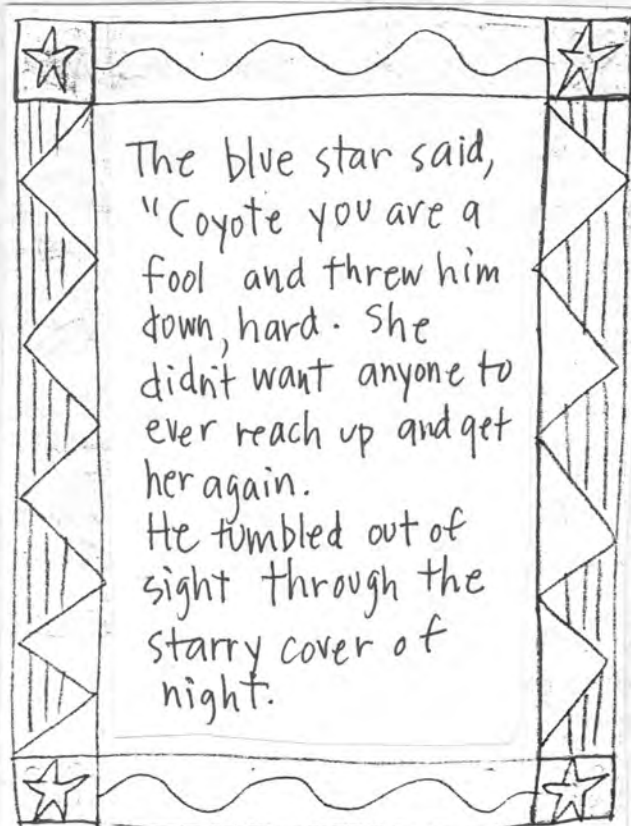 The blue star said,
"Coyote you are a
fool and threw him
down, hard. She
didn't want anyone to
ever reach up and get
her again.
He tumbled out of
sight through the
starry cover of
night.